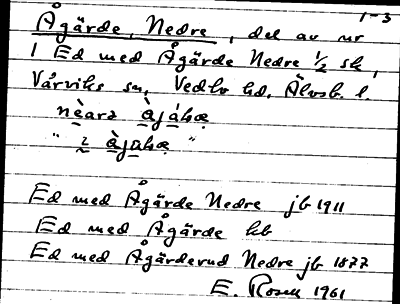 1-3
Ågärde, Nedre, del av nr
1 Ed med Ågärde Nedre 1/2 sk,
Vårviks sn, Vedbo hd, Älvsb. l.
Ed med Ågärde Nedre jb 1911
Ed med Ågärde hb
Ed med Ågärderud Nedre jb 1877
E. Rosell 1961